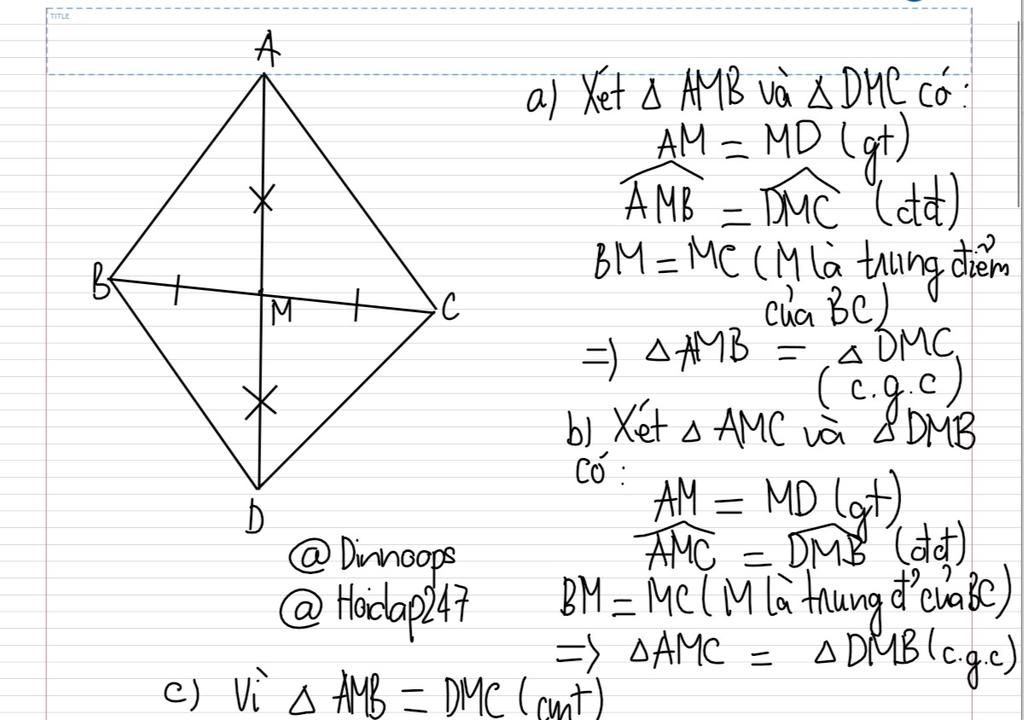 TITLE
A
B
M
C
D
@ Dinnoops
@ Hoidap247
a) Xét Δ AMB và Δ DMC có:
AM = MD (gt)
AMB = DMC (đđ)
BM = MC (M là trung điểm
của BC)
=> Δ AMB = Δ DMC
(c.g.c)
b) Xét Δ AMC và Δ DMB
có:
AM = MD (gt)
AMC = DMB (đđ)
BM = MC (M là trung đ' của BC)
=> Δ AMC = Δ DMB (c.g.c)
c) Vì Δ AMB = DMC (cmt)